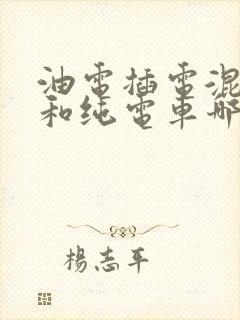 油電插電混
和纯電車哪
楊志平